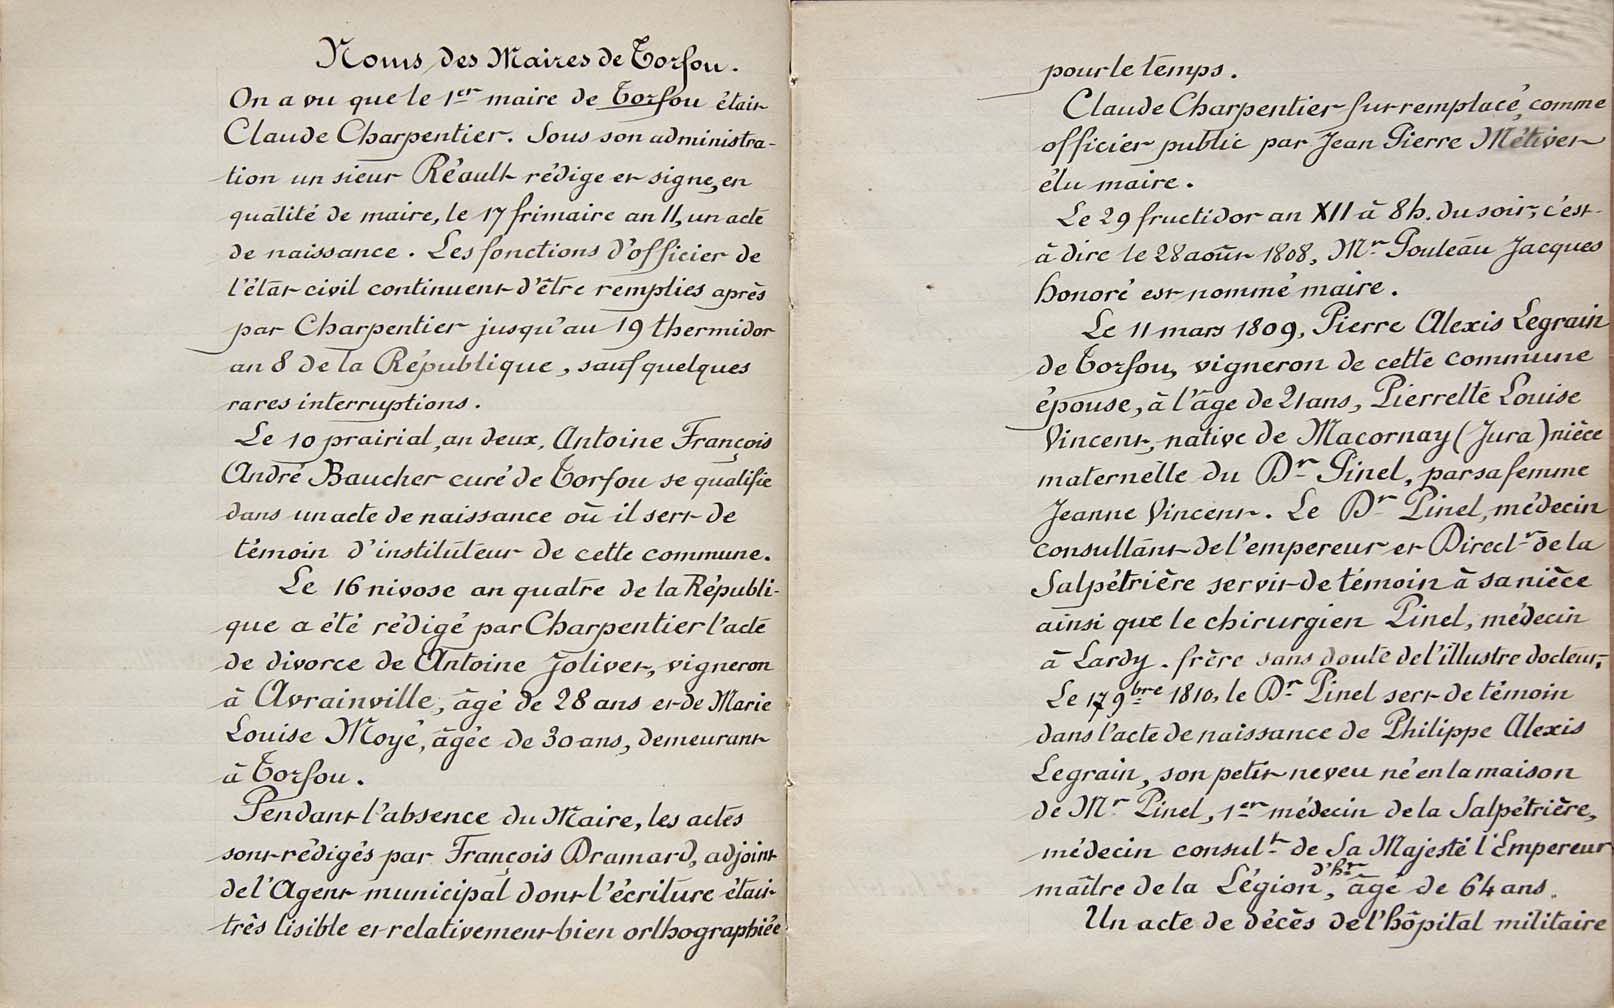 Noms des Maires de Torfou.
On a vu que le 1er maire de Torfou était
Claude Charpentier. Sous son administra-
tion un sieur Réault rédige et signe, en
qualité de maire, le 17 frimaire an II, un acte
de naissance. Les fonctions d'officier de
l'état civil continuent d'être remplies après
par Charpentier jusqu'au 19 thermidor
an 8 de la République, sauf quelques
rares interruptions.
Le 10 prairial, an deux, Antoine François
André Baucher curé de Torfou se qualifie
dans un acte de naissance où il sert de
témoin d'instituteur de cette commune.
Le 16 nivose an quatre de la Républi-
que a été rédigé par Charpentier l'acte
de divorce de Antoine Jolivet, vigneron
à Avrainville, âgé de 28 ans et de Marie
Louise Moyé, âgée de 30 ans, demeurant
à Torfou.
Pendant l'absence du Maire, les actes
sont rédigés par François Dramard, adjoint
de l'Agent municipal dont l'écriture était
très lisible et relativement bien orthographiée
pour le temps.
Claude Charpentier fut remplacé, comme
officier public par Jean Pierre Métivet
élu maire.
Le 29 fructidor an XII à 8h. du soir, c'est-
à dire le 28 août 1808, Mr Pouleau Jacques
honoré est nommé maire.
Le 11 mars 1809, Pierre Alexis Legrain
de Torfou, vigneron de cette commune
épouse, à l'âge de 21 ans, Pierrette Louise
Vincent, native de Macornay (Jura) nièce
maternelle du Dr Pinel, par sa femme
Jeanne Vincent. Le Dr Pinel, médecin
consultant de l'empereur et Directr de la
Salpétrière servit de témoin à sa nièce
ainsi que le chirurgien Pinel, médecin
à Lardy. frère sans doute de l'illustre docteur,
Le 17 9bre 1810, le Dr Pinel sert de témoin
dans l'acte de naissance de Philippe Alexis
Legrain, son petit neveu né en la maison
de Mr Pinel, 1er médecin de la Salpétrière,
médecin consult de Sa Majesté l'Empereur
maître de la Légion d'hr, âgé de 64 ans.
Un acte de décès de l'hôpital militaire